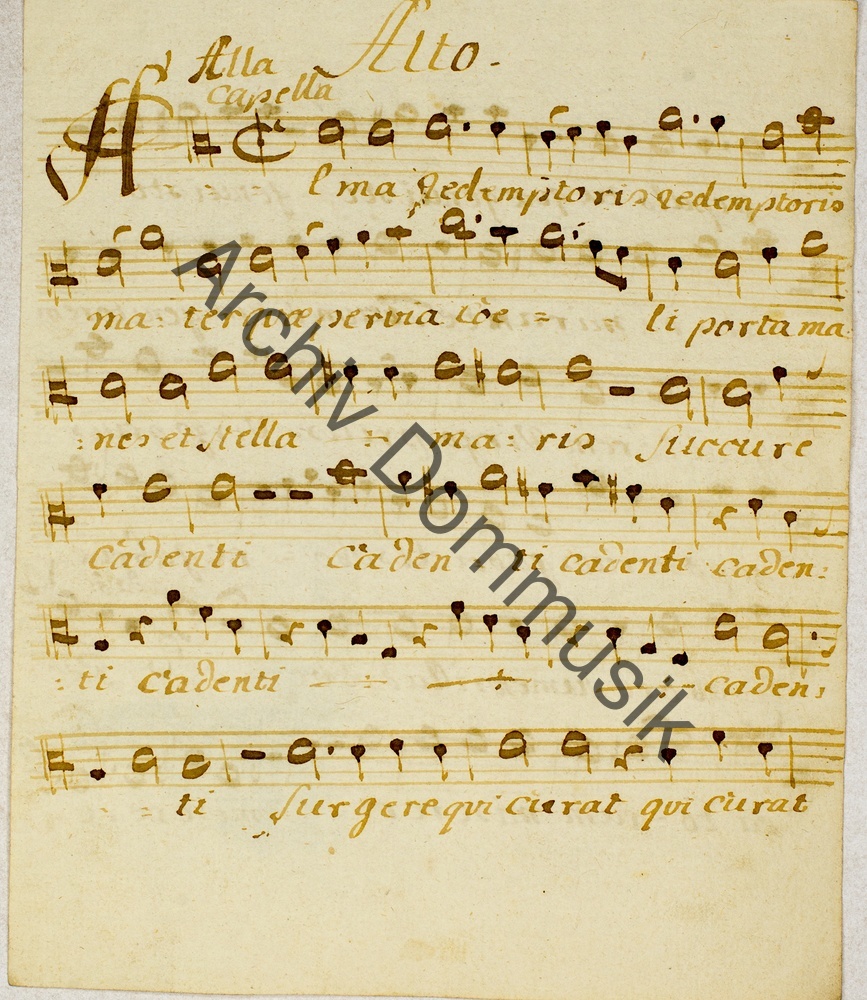 Alto.
Alla
capella
Alma Redemptoris redemptoris
ma: ter quæ pervia cœ = li porta ma
: nes et stella ma: ris succure
cadenti caden = ti cadenti caden:
: ti cadenti caden:
= ti surgere qui curat qui curat
Archiv Dommusik